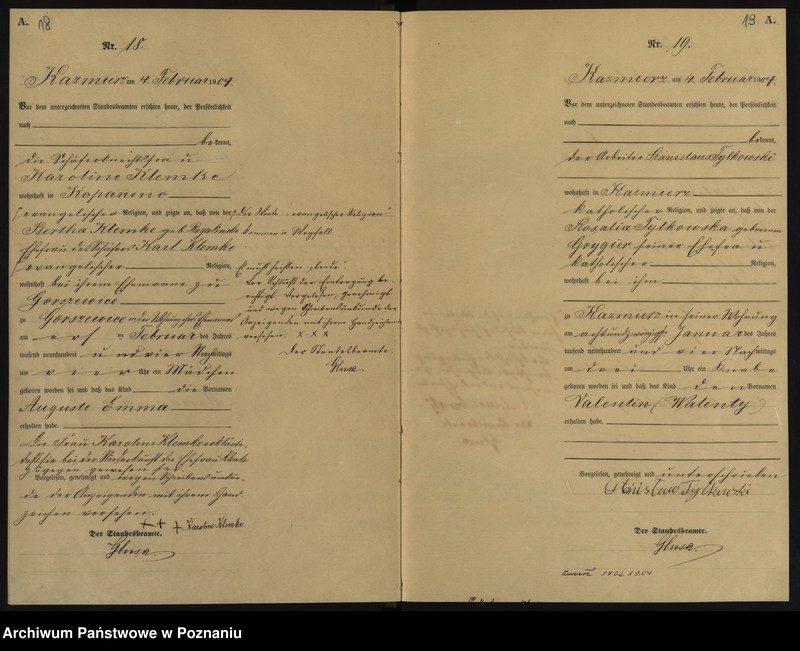 A. 18
Nr. 18.
Kazmierz am 4. Februar 1904.
Vor dem unterzeichneten Standesbeamten erschien heute, der Persönlichkeit
nach
bekannt,
die Schäferknechtsfrau
Karoline Klemke
wohnhaft in Kopanino
evangelischer Religion, und zeigte an, daß von der
Bertha Klemke geb.
Ehefrau des Schäfers Karl Klemke
evangelischer Religion,
wohnhaft bei ihrem Ehemanne zu
Gorszewice
zu Gorszewice in der Wohnung ihres Ehemannes
am ersten Februar des Jahres
tausend neunhundert und vier Nachmittags
um vier Uhr ein Mädchen
geboren worden sei und daß das Kind die Vornamen
Auguste Emma
erhalten habe.
Die Frau Karoline Klemke erklärte,
daß sie bei der Niederkunft der Ehefrau
zugegen gewesen sei.
Vorgelesen, genehmigt und wegen Schreibensunkun-
de der Anzeigenden mit ihrem Hand-
zeichen versehen.
+++ Karoline Klemke.
Der Standesbeamte.
Glusa
Die Worte "evangelischer Religion"
kommen in Wegfall.
Vor Schluß der Eintragung be-
richtigt. Vorgelesen, genehmigt
und wegen Schreibensunkunde der
Anzeigenden mit ihrem Handzeichen
versehen. x x x
Der Standesbeamte
Glusa.
19 A.
Nr. 19.
Kazmierz am 4. Februar 1904.
Vor dem unterzeichneten Standesbeamten erschien heute, der Persönlichkeit
nach
bekannt,
der Arbeiter Stanislaus Tylkowski
wohnhaft in Kazmierz
katholischer Religion, und zeigte an, daß von der
Rosalia Tylkowska geborenen
Grygier seiner Ehefrau
katholischer Religion,
wohnhaft bei ihm
zu Kazmierz in seiner Wohnung
am achtundzwanzigsten Januar des Jahres
tausend neunhundert und vier Nachmittags
um drei Uhr ein Knabe
geboren worden sei und daß das Kind den Vornamen
Valentin (Walenty)
erhalten habe.
Vorgelesen, genehmigt und unterschrieben
Tylkowski
Der Standesbeamte.
Glusa
Archiwum Państwowe w Poznaniu